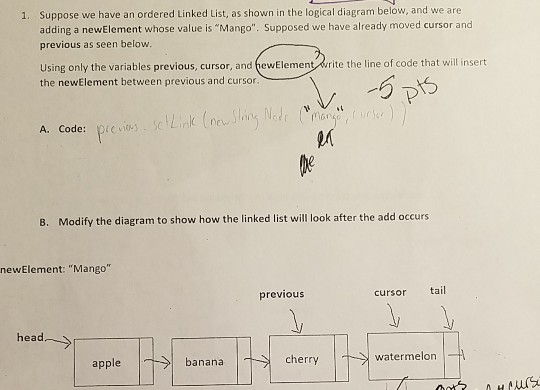 1. Suppose we have an ordered Linked List, as shown in the logical diagram below, and we are
adding a newElement whose value is "Mango". Supposed we have already moved cursor and
previous as seen below.
Using only the variables previous, cursor, and newElement, write the line of code that will insert
the newElement between previous and cursor.
-5 pts
A. Code: previous.setLink (new String Node ("mango", cursor))
B. Modify the diagram to show how the linked list will look after the add occurs
newElement: "Mango"
previous cursor tail
head
apple banana cherry watermelon